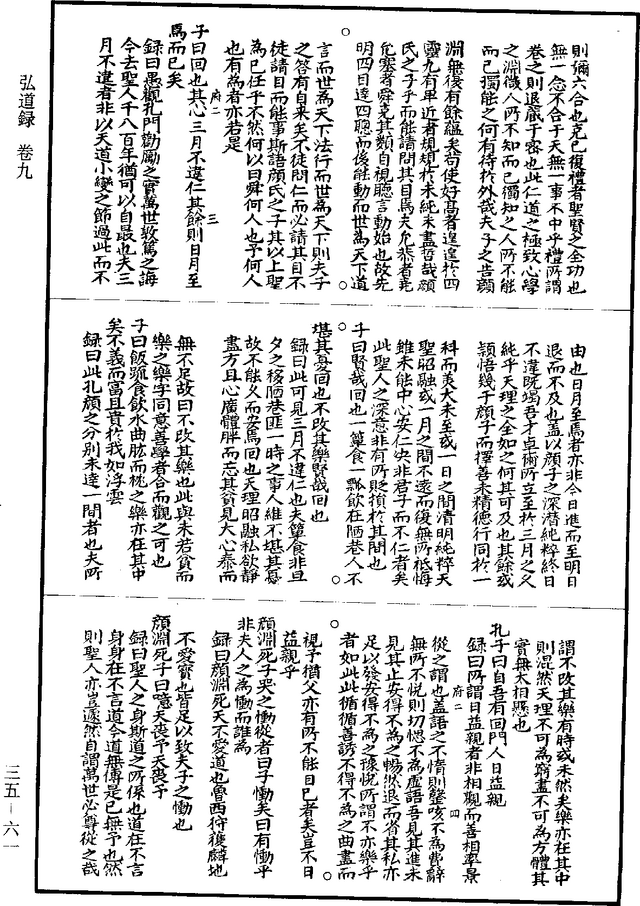 弘道録 卷九
三五－六一
則彌六合也克己復禮者聖賢之全功也
無一念不合于天無一事不中乎禮所謂
卷之則退藏于密也此仁道之極致心學
之淵微人所不知而己獨知之人所不能
而己獨能之何有待於外哉夫子之告顏
淵無復有餘蘊矣苟使好高者遑遑於四
靈九有卑近者規規於未純未盡哲哉顏
氏之子乎而能請問其目焉夫允恭者堯
允塞者舜克其類自視聽言動始也故先
明四目達四聰而後能動而世為天下道
言而世為天下法行而世為天下則夫子
之答有自来矣不徒問仁而必請其目不
徒請目而能事斯語顏氏之子其以上聖
為己任乎不然何以曰舜何人也予何人
也有為者亦若是
府二 三
子曰回也其心三月不違仁其餘則日月至
焉而已矣
録曰愚觀孔門勸勵之實萬世敦篤之誨
今去聖人千八百年猶可以自最也夫三
月不違者非以天道小變之節過此而不
由也日月至焉者亦非今日進而至明日
退而不及也盖以顏子之深潛純粹終日
不違既竭吾才卓爾所立至於三月之久
純乎天理之全如之何其可及也其餘或
頴悟幾于顏子而擇善未精德行同於一
科而美大未至或一日之間清明純粹天
聖昭融或一月之間不遠而復無所祗悔
雖未能中心安仁央非君子而不仁者矣
此聖人之深意非有所貶損於其間也
子曰賢哉回也一簞食一瓢飲在陋巷人不
堪其憂回也不改其樂賢哉回也
録曰此可見三月不違仁也夫簞食非旦
夕之移陋巷匪一時之事人維不堪其憂
故不能久而安焉回也天理昭融私欲靜
盡方且心廣體胖而忘其貧見大心泰而
無不足故曰不改其樂也此與未若貧而
樂之樂字同意善學者合而觀之可也
子曰飯疏食飲水曲肱而枕之樂亦在其中
矣不義而富且貴於我如浮雲
録曰此孔顏之分別未達一間者也夫所
謂不改其樂有時或未然矣樂亦在其中
則混然天理不可為窮盡不可為方體其
實無太相懸也
孔子曰自吾有回門人日益親
録曰所謂日益親者非相觀而善相率景
府二 四
從之謂也盖語之不惰則謦咳不為費辭
無所不悅則切偲不為虛語吾見其進未
見其止安得不為之暢然退而省其私亦
足以發安得不為之豫悅所謂不亦樂乎
者如此此循循善誘不得不為之曲盡而
視予猶父亦有所不能自已者矣豈不曰
益親乎
顏淵死子哭之慟從者曰子慟矣曰有慟乎
非夫人之為慟而誰為
録曰顏淵死天不愛道也魯西狩獲麟地
不愛寳也皆足以致夫子之慟也
顏淵死子曰噫天喪予天喪予
録曰聖人之身斯道之所係也道在不言
身身在不言道今道無傳是已無予也然
則聖人亦豈遽然自謂萬世必尊從之哉